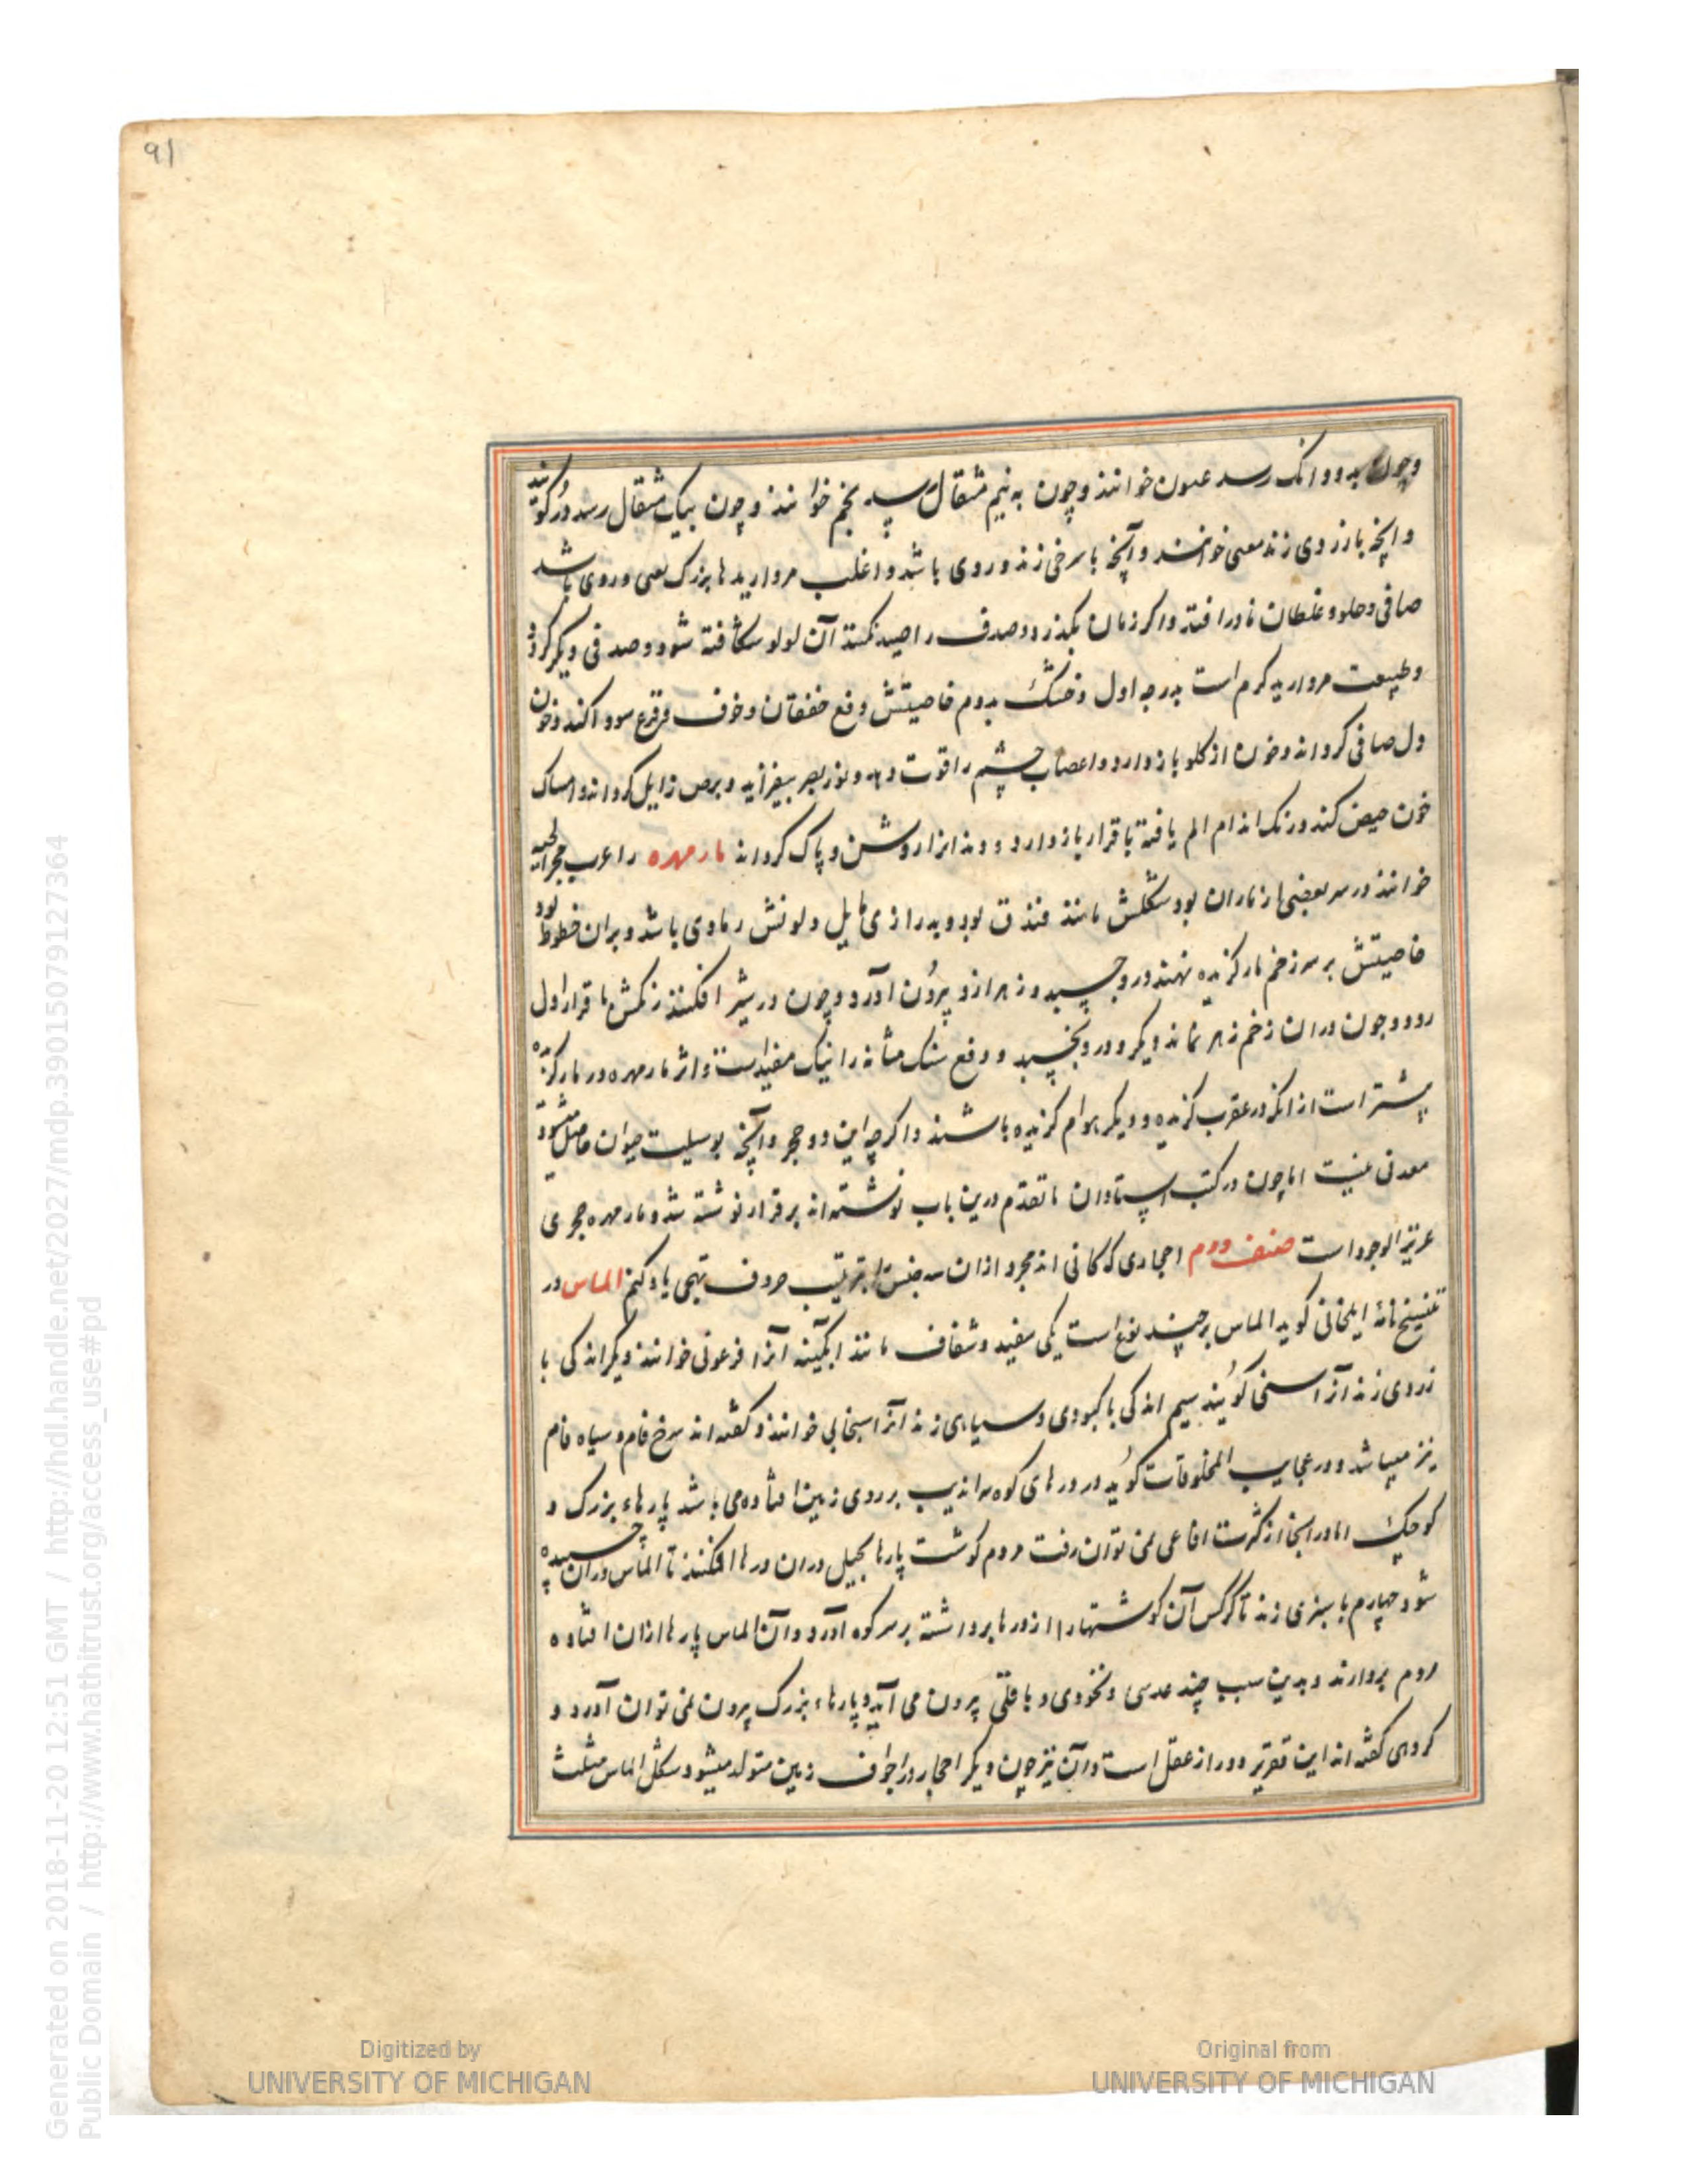 91
وچون بدو دانک رسد عیون خوانند وچون به نیم مثقال رسد نجم خوانند وچون بیک مثقال رسد در کویند
وانچه بازردی زند معنی خوانند وآنچه با سرخی زند وردی باشد واغلب مرواریدها بزرک وردی باشد
صافی وحلو وغلطان نادر افتد واکر زمان بکذرد وصدف را صید نکنند آن لولو شکافته شود وصدفی دیکر کردد
وطبیعت مروارید کرم است بدرجه اول وخشک بدوم خاصیتش دفع خفقان وخوف وفزع سودا کند وخون
دل صافی کرداند وخون از کلو بازدارد واعصاب چشم را قوت دهد ونور بصر بیفزاید وبرص زایل کرداند وامساک
خون حیض کند ورنک اندام الم یافته باقرار بازدارد ودندانرا روشن وپاک کرداند مار مهره را عرب حجر الحیه
خوانند در سر بعضی از ماران بود شکلش مانند فندق بود وبدرازی مایل ولونش رمادی باشد وبران خطوط بود
خاصیتش بر سر زخم مار کزیده نهند درو چسبد وزهر ازو بیرون آورد وچون در شیر افکنند رنکش با قرار اول
رود وچون دران زخم زهر نماند دیکر درو نچسبد ودفع سنک مثانه را نیک مفید است واثر مار مهره در مار کزیده
بیشتر است از انکه در عقرب کزیده ودیکر هوام کزیده باشند واکرچه این دو حجر وآنچه بوسیلت حیوان حاصل شود
معدنی نیست اما چون در کتب استادان ماتقدم درین باب نوشته اند برقرار نوشته شد ومار مهره حجری
عزیز الوجود است صنف دوم احجاری که کانی اند مجرد ازان سه جنس بترتیب حروف تهجی یاد کنم الماس در
تنسیخ نامه ایلخانی کوید الماس بر چند نوع است یکی سفید وشفاف مانند ابکینه آنرا فرعونی خوانند دیکر اندکی با
زردی زند آنرا کویند سیم اندکی با کبودی وسیاهی زند آنرا خوانند وکفته اند سرخ فام وسیاه فام
نیز میباشد ودر عجایب المخلوقات کوید در درهای کوه سراندیب بر روی زمین افتاده می باشد پارهاء بزرک و
کوچک اما در انجا از کثرت افاعی نمی توان رفت مردم کوشت پارها بحیل دران درها افکنند تا الماس دران چسبیده
شود چهارم با سبزی زند تا کرکس آن کوشتها را از درها برداشته بر سر کوه آورد وآن الماس پارها ازان افتاده
مردم بردارند وبدین سبب چند عدسی ونخودی وباقلی بیرون می آید وپارهاء بزرک بیرون نمی توان آورد و
کروهی کفته اند این تقریر دور از عقل است وآن نیز چون دیکر احجار در اجواف زمین متولد میشود وشکل الماس مثلث
Generated on 2018-11-20 12:51 GMT / http://hdl.handle.net/2027/mdp.39015079127364
Public Domain / http://www.hathitrust.org/access_use#pd
Digitized by
UNIVERSITY OF MICHIGAN
Original from
UNIVERSITY OF MICHIGAN